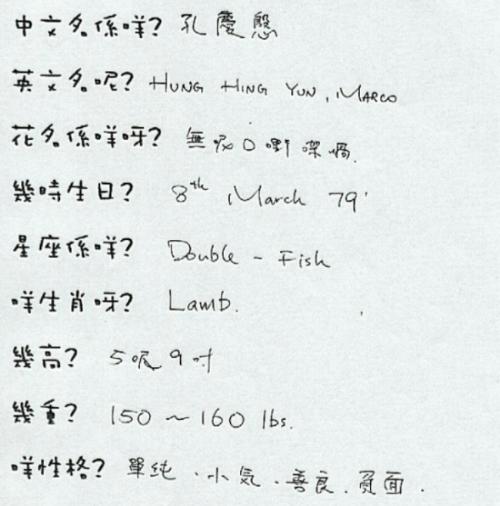 中文名係咩? 孔慶慇
英文名呢? HUNG HING YUN, MARCO
花名係咩呀? 無
幾時生日? 8th March 79'
星座係咩? Double - Fish
咩生肖呀? Lamb.
幾高? 5呎9吋
幾重? 150 ~ 160 lbs.
咩性格? 單純、小気、善良、負面.